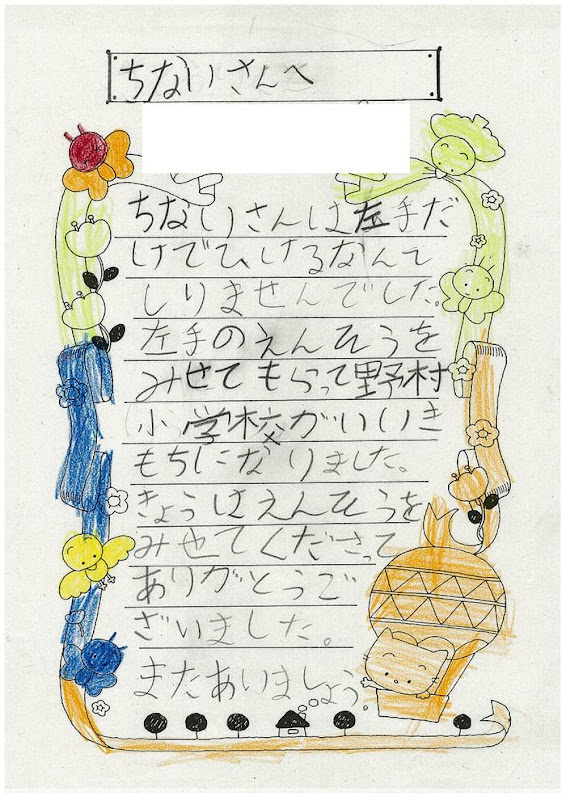 ちないさんへ
ちないさんは左手だ
けでひけるなんて
しりませんでした。
左手のえんそうを
みせてもらって野村
小学校がいいき
もちになりました。
きょうはえんそうを
みせてくださって
ありがとうご
ざいました。
またあいましょう